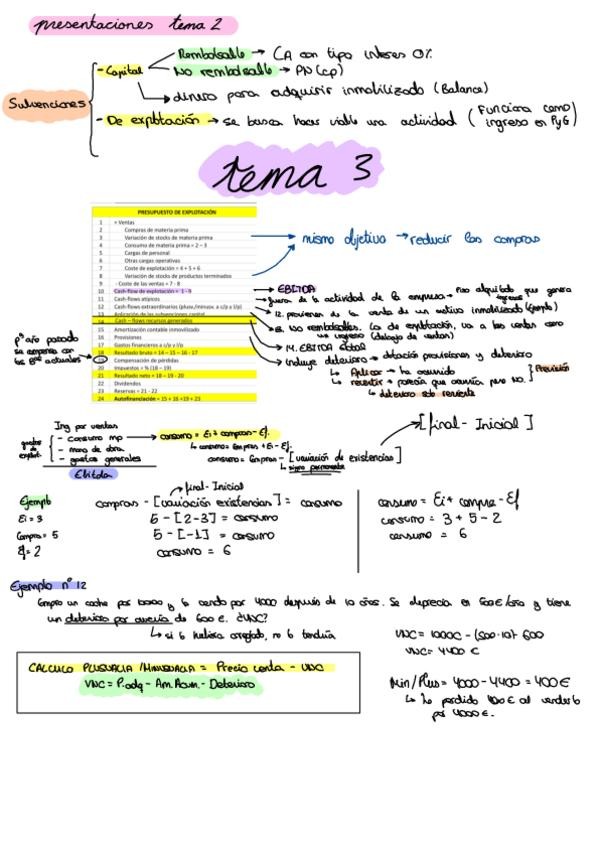 presentaciones tema 2
Subvenciones
- Capital
Rembolsable → CA con tipo interes 0%
No rembolsable → PN (cp)
→ dinero para adquirir inmobilizado (Balance)
- De explotación → se busca hacer viable una actividad (Funciona como ingreso en PyG)
tema 3
PRESUPUESTO DE EXPLOTACIÓN
1 + Ventas
2 Compras de materia prima
3 Variación de stocks de materia prima
4 Consumo de materia prima = 2 – 3
5 Cargas de personal
6 Otras cargas operativas
7 Coste de explotación = 4 + 5 + 6
8 Variación de stocks de productos terminados
9 - Coste de las ventas = 7 - 8
10 Cash-flow de explotación = 1 - 9
11 Cash-flows atípicos
12 Cash-flows extraordinarios (plusv./minusv. a c/p a l/p)
13 Aplicación de las subvenciones capital
14 Cash – flows recursos generados
15 Amortización contable inmovilizado
16 Provisiones
17 Gastos financieros a c/p y l/p
18 Resultado bruto = 14 – 15 – 16 - 17
Compensación de pérdidas
20 Impuestos = % (18 – 19)
21 Resultado neto = 18 – 19 - 20
22 Dividendos
23 Reservas = 21 - 22
24 Autofinanciación = 15 + 16 +19 + 23
mismo objetivo → reducir las compras
EBITDA
fuera de la actividad de la empresa → piso alquilado que genera ingresos
12. provienen de la venta de un activo inmobilizado (ejemplo)
13. No rembolsables. La de explotación, va a las ventas como un ingreso (debajo de ventas)
14. EBITDA
incluye deterioro → dotación provisiones y deterioro
↳ Aplicar → ha ocurrido
↳ revertir → parecía que ocurría pero NO.
] Previsión
↳ deterioro se revierte
pª año pasado se compensa con los Bºs actuales
Ing por ventas
gastos de explot.
- consumo mp
- mano de obra
- gastos generales
Ebitda
→ consumo = Ei + compras - Ef.
↳ consumo = Compras + Ei - Ef.
consumo = Compras - [variación de existencias]
↳ signo permanente
→ [final - Inicial]
Ejemplo
Ei = 3
Compra = 5
Ef = 2
final - Inicial
compras - [variación existencias] = consumo
5 - [2-3] = consumo
5 - [-1] = consumo
consumo = 6
consumo = Ei + compra - Ef
consumo = 3 + 5 - 2
consumo = 6
Ejemplo nº 12
Compro un coche por 10000 y lo vendo por 4000 después de 10 años. Se deprecia en 500€/año y tiene
un deterioro por avería de 600 €. ¿VNC?
↳ si lo hubiera arreglado, no lo tendría
VNC = 10000 - (500·10) - 600
VNC = 4400 €
CALCULO PLUSVALIA / MINUSVALIA = Precio venta - VNC
VNC = P.adq - Am. Acum. - Deterioro
Min/Plus = 4000 - 4400 = 400 €
↳ he perdido 400 € al venderlo
por 4000 €.